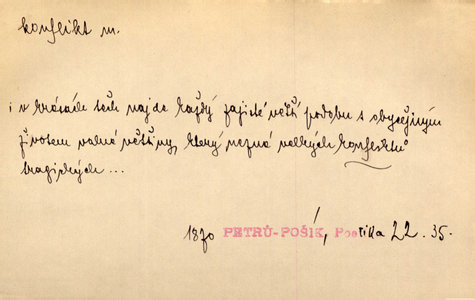 konflikt m.
i v krásách těch najde každý jajisté větší podobu s obyčejným
životem valné většiny, který nezná velkých konfliktů
tragických ...
1870 PETRŮ-POŠÍK, Poetika 22. 35.